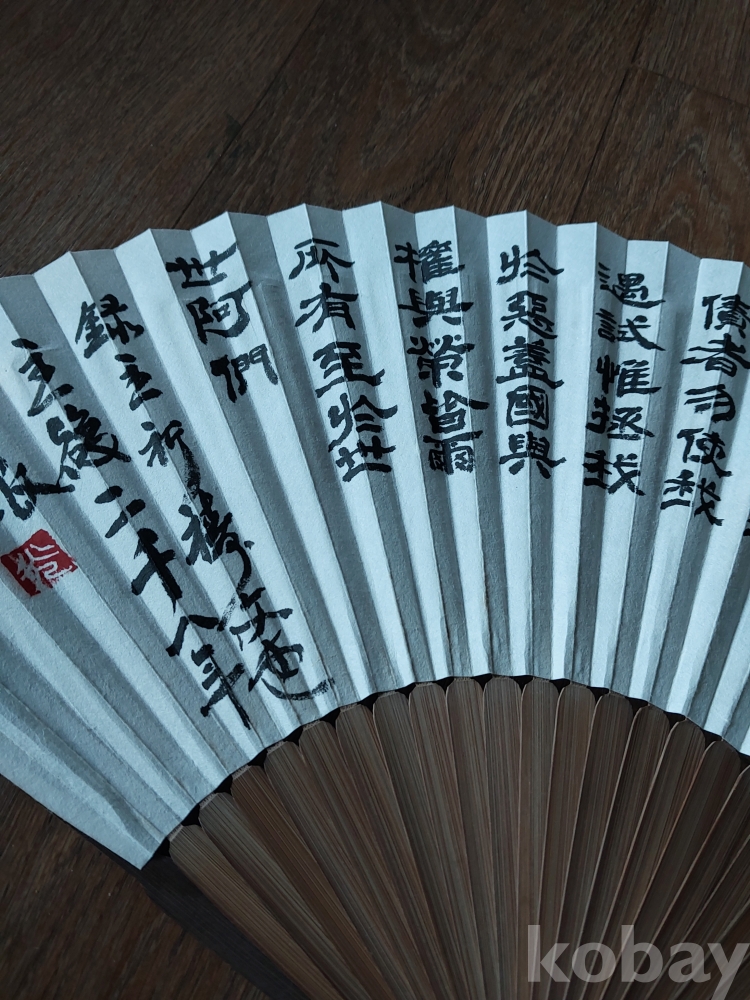 債者勿使我
遇試惟拯我
於惡蓋國與
權與榮皆爾
所有至於世
世阿們
錄主祈禱文也
主後二千八年
kobay